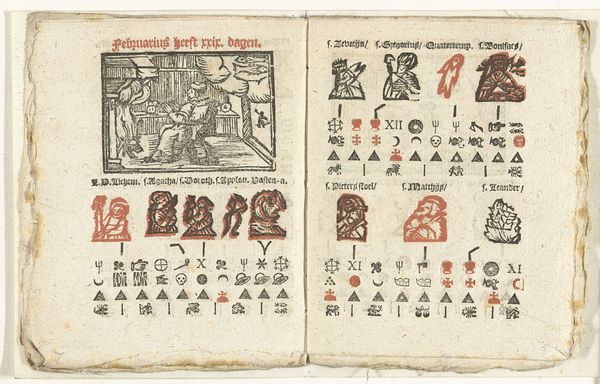 Februarius heeft xxix. dagen.
L.V.Lichtm. s.Agatha/ s.Doroth. s.Apolon. Vasten-a.
X
s. Severijn/ s. Gregorius/ Quatertemp. s. Bonifaes/
XII
s. Pieters stoel/ s. Matthijs/ s. Leander/
XI XI